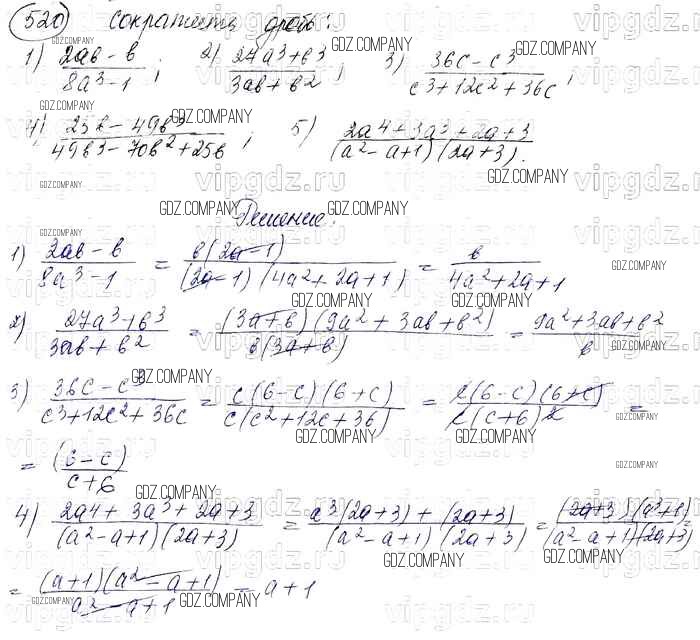 520 Сократить дробь:
1) (2ab − b)/(8a³ − 1); 2) (27a³ + b³)/(3ab + b²); 3) (36c − c³)/(c³ + 12c² + 36c);
4) (25b − 49b³)/(49b³ − 70b² + 25b); 5) (2a⁴ + 3a³ + 2a + 3)/((a² − a + 1)(2a + 3)).
Решение:
1) (2ab − b)/(8a³ − 1) = b(2a − 1)/((2a − 1)(4a² + 2a + 1)) = b/(4a² + 2a + 1)
2) (27a³ + b³)/(3ab + b²) = (3a + b)(9a² + 3ab + b²)/(b(3a + b)) = (9a² + 3ab + b²)/b
3) (36c − c³)/(c³ + 12c² + 36c) = c(6 − c)(6 + c)/(c(c² + 12c + 36)) = c(6 − c)(6 + c)/(c(c + 6)²) =
= (6 − c)/(c + 6)
4) (2a⁴ + 3a³ + 2a + 3)/((a² − a + 1)(2a + 3)) = (a³(2a + 3) + (2a + 3))/((a² − a + 1)(2a + 3)) = (2a + 3)(a³ + 1)/((a² − a + 1)(2a + 3)) =
= (a + 1)(a² − a + 1)/(a² − a + 1) = a + 1
vipgdz.ru
GDZ.COMPANY